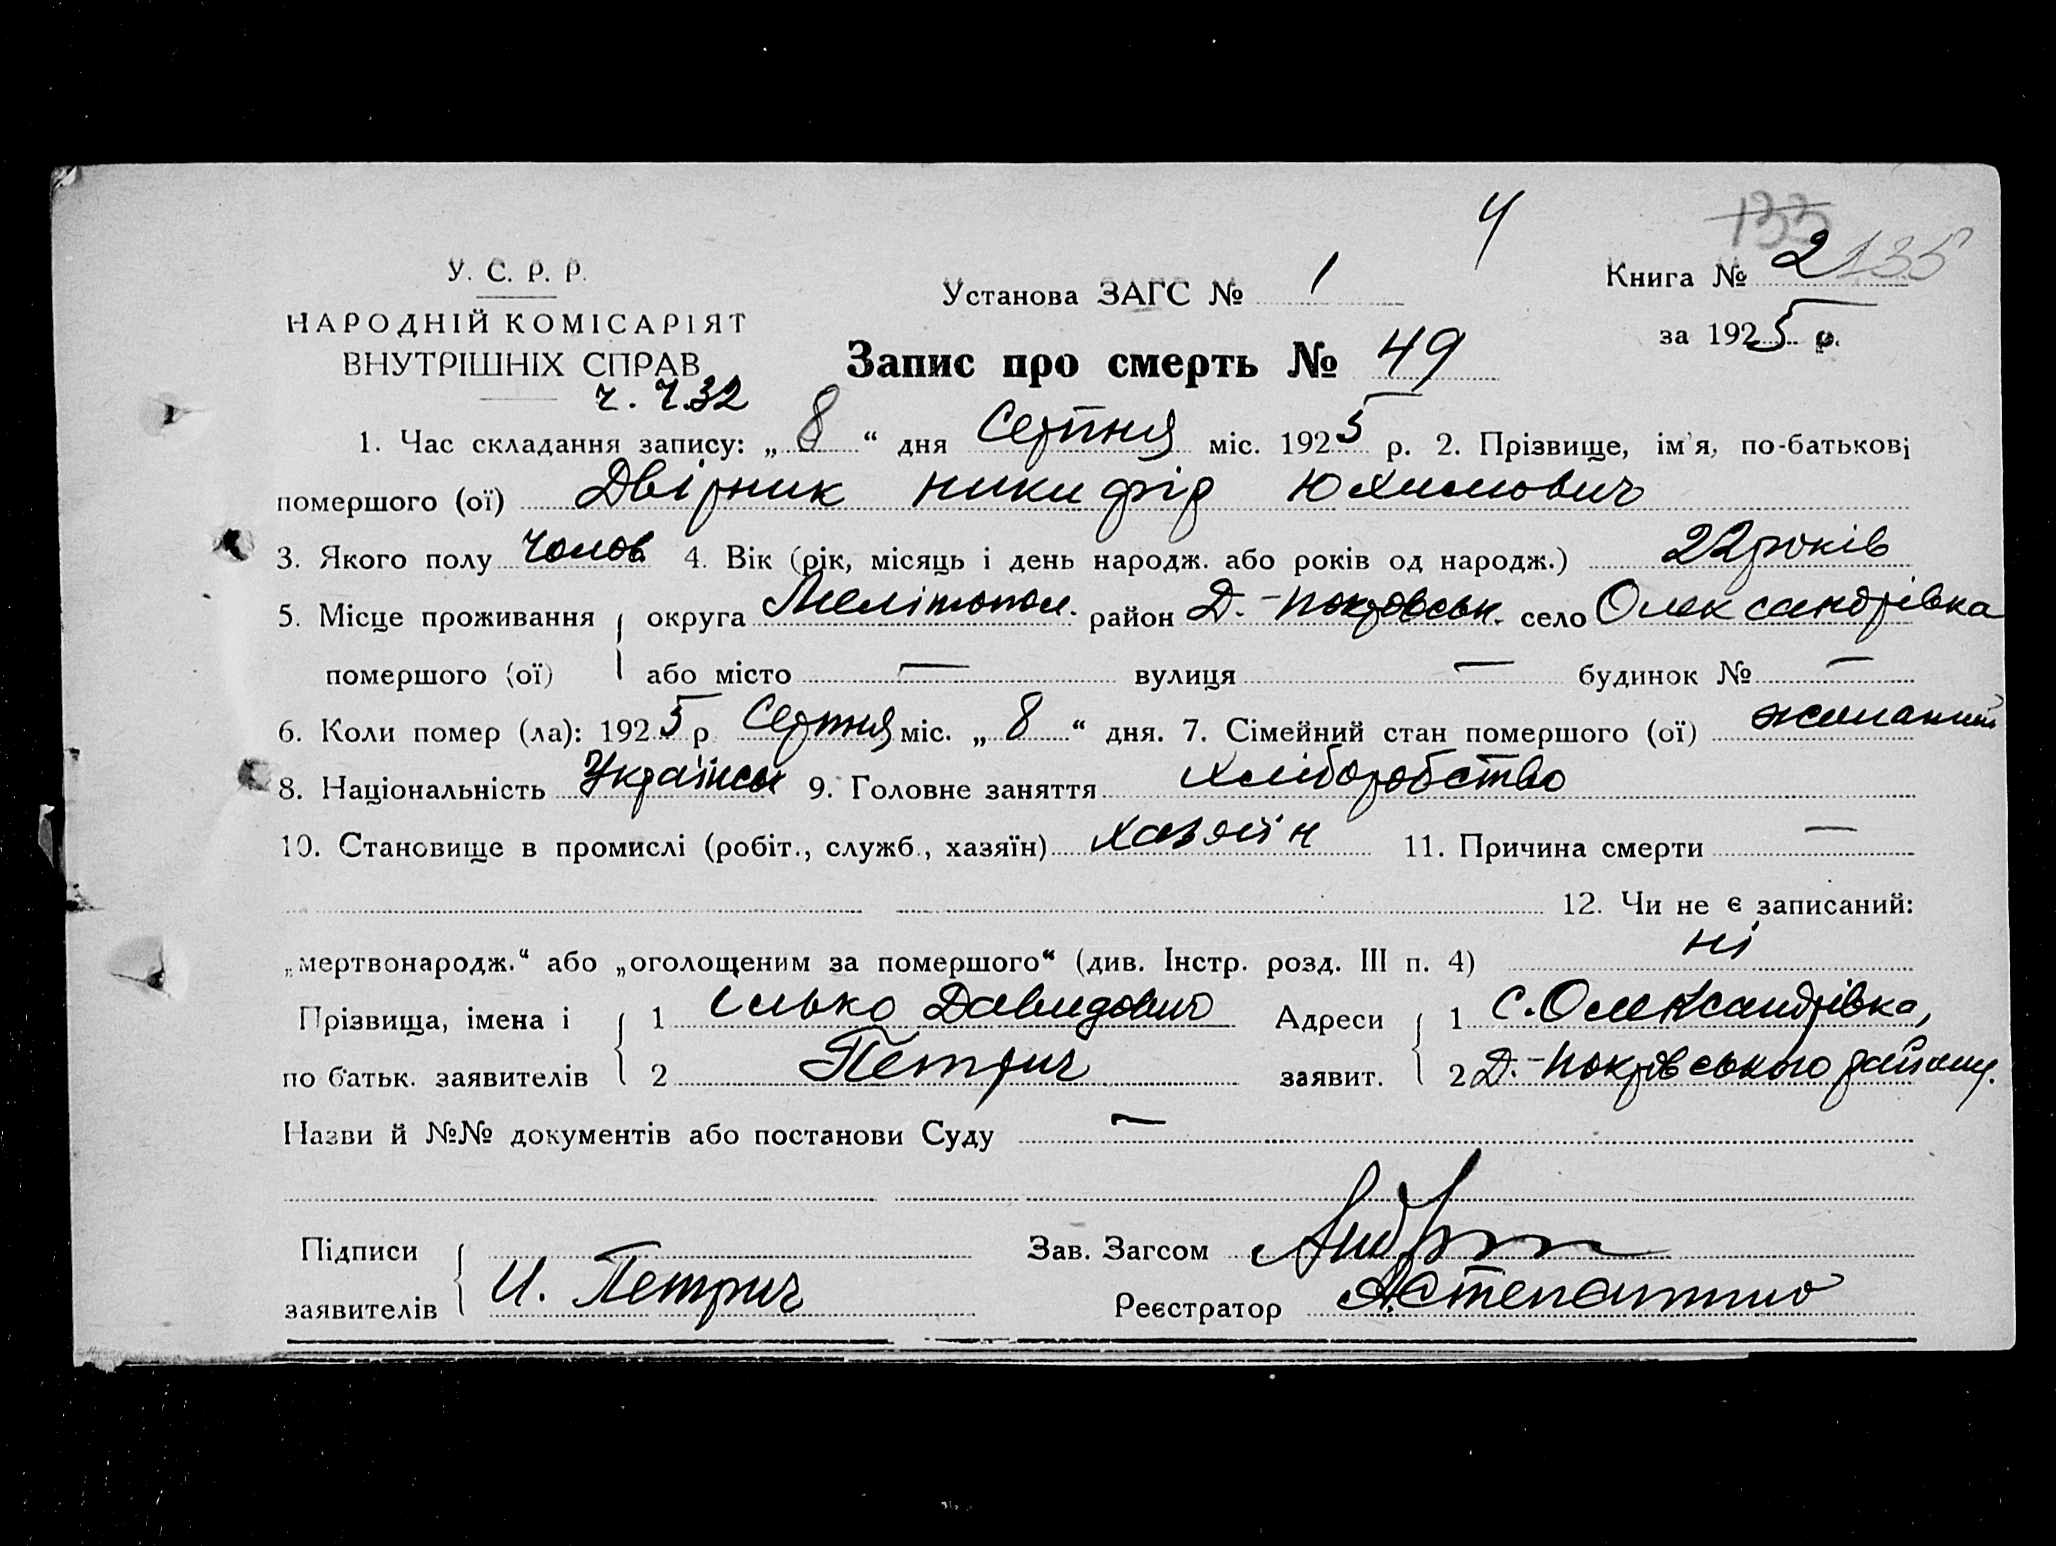 Ч
133
У. С. Р. Р.
НАРОДНІЙ КОМІСАРІЯТ
ВНУТРІШНІХ СПРАВ
Установа ЗАГС № 1
Книга № 2 135
за 1925 р.
Запис про смерть № 49
1. Час складання запису: „8“ дня Серпня міс. 1925 р. 2. Прізвище, ім'я, по-батькові
помершого (ої) Двірник Никифір Юхимович
3. Якого полу Чолов. 4. Вік (рік, місяць і день народж. або років од народж.) 22 років
5. Місце проживання округа Мелітопол. район Д.-Покровськ. село Олександрівка
помершого (ої) або місто — вулиця — будинок № —
6. Коли помер (ла): 1925 р Серпня міс. „8“ дня. 7. Сімейний стан помершого (ої) жонатий
8. Національність Україн. 9. Головне заняття Хліборобство
10. Становище в промислі (робіт., служб., хазяїн) Хазяїн 11. Причина смерти —
12. Чи не є записаний:
„мертвонародж.“ або „оголощеним за помершого“ (див. Інстр. розд. III п. 4) ні
Прізвища, імена і 1 Ілько Давидович Адреси 1 С. Олександрівка,
по батьк. заявителів 2 Петрич заявит. 2 Д.-Покрівського району.
Назви й №№ документів або постанови Суду —
Підписи Зав. Загсом
заявителів И. Петрич Реєстратор